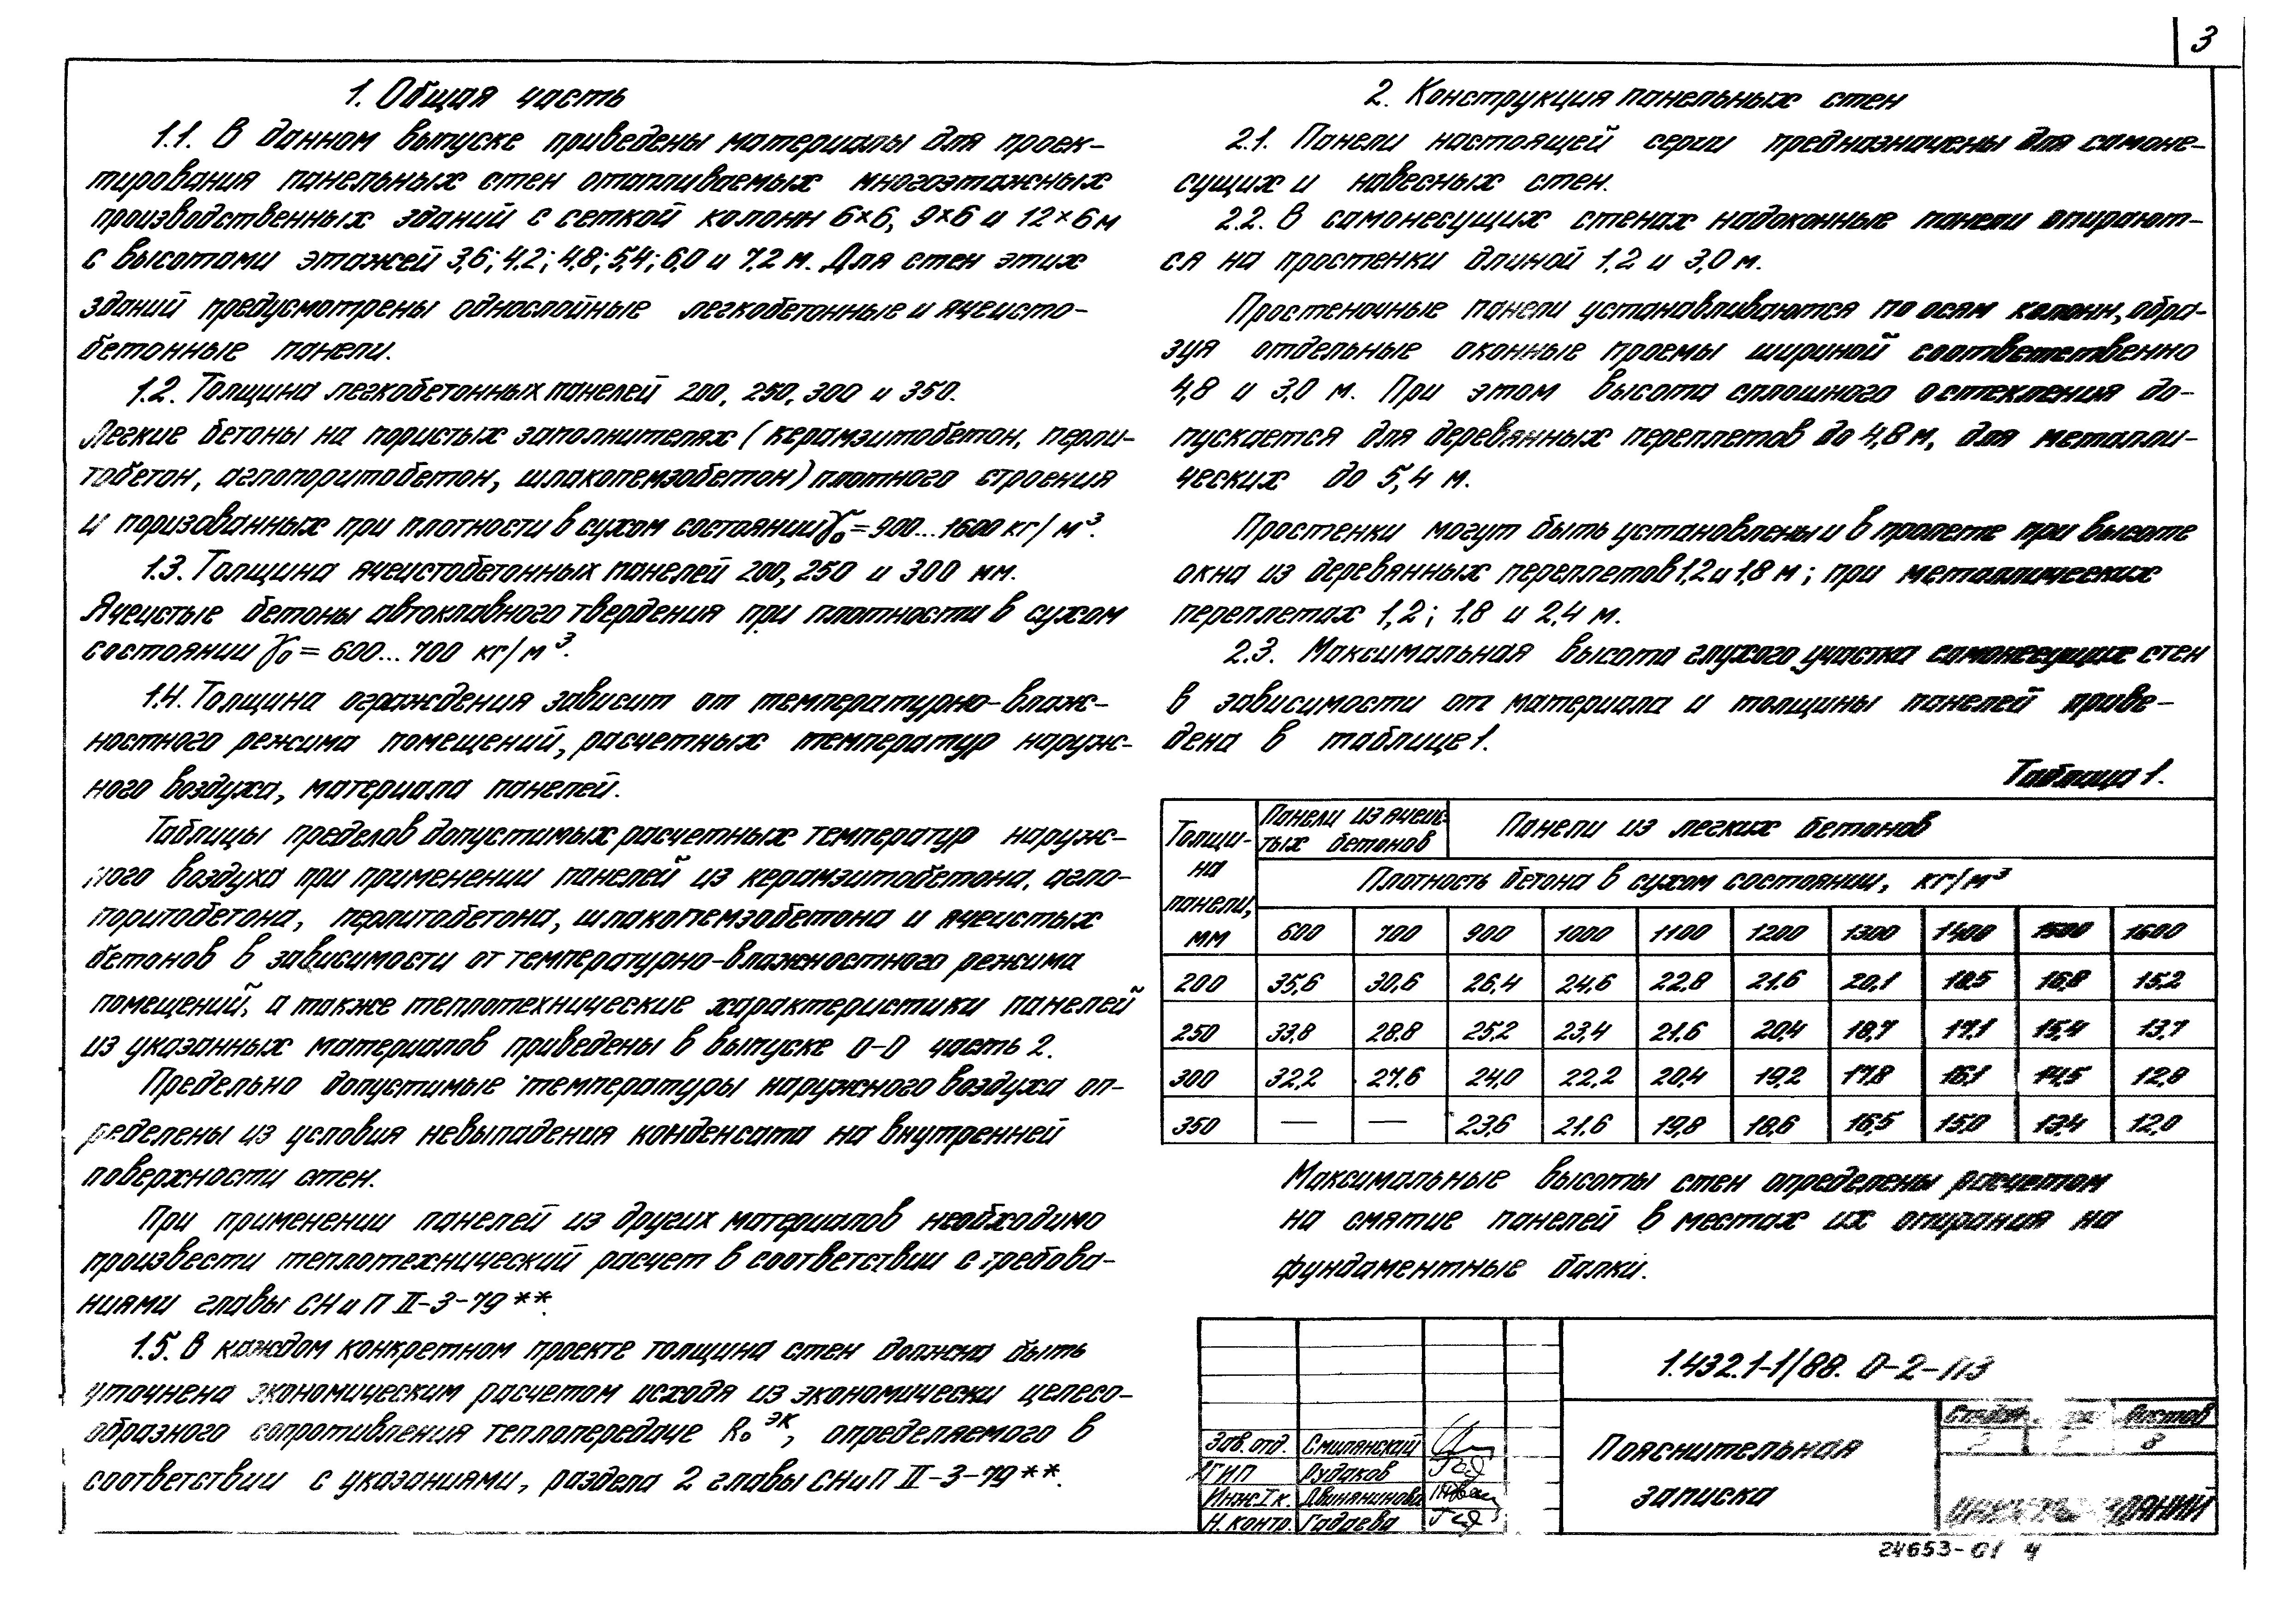 3
1. Общая часть
1.1. В данном выпуске приведены материалы для проек-
тирования панельных стен отапливаемых многоэтажных
производственных зданий с сеткой колонн 6×6, 9×6 и 12×6 м
с высотами этажей 3,6; 4,2; 4,8; 5,4; 6,0 и 7,2 м. Для стен этих
зданий предусмотрены однослойные легкобетонные и ячеисто-
бетонные панели.
1.2. Толщина легкобетонных панелей 200, 250, 300 и 350.
Легкие бетоны на пористых заполнителях (керамзитобетон, перли-
тобетон, аглопоритобетон, шлакопемзобетон) плотного строения
и поризованных при плотности в сухом состоянии γ₀ = 900...1600 кг/м³.
1.3. Толщина ячеистобетонных панелей 200, 250 и 300 мм.
Ячеистые бетоны автоклавного твердения при плотности в сухом
состоянии γ₀ = 600...700 кг/м³.
1.4. Толщина ограждения зависит от температурно-влаж-
ностного режима помещений, расчетных температур наруж-
ного воздуха, материала панелей.
Таблицы пределов допустимых расчетных температур наруж-
ного воздуха при применении панелей из керамзитобетона, агло-
поритобетона, перлитобетона, шлакопемзобетона и ячеистых
бетонов в зависимости от температурно-влажностного режима
помещений, а также теплотехнические характеристики панелей
из указанных материалов приведены в выпуске 0-0 часть 2.
Предельно допустимые температуры наружного воздуха оп-
ределены из условия невыпадения конденсата на внутренней
поверхности стен.
При применении панелей из других материалов необходимо
произвести теплотехнический расчет в соответствии с требова-
ниями главы СНиП II-3-79**.
1.5. В каждом конкретном проекте толщина стен должна быть
уточнена экономическим расчетом исходя из экономически целесо-
образного сопротивления теплопередаче R₀ᵉᵏ, определяемого в
соответствии с указаниями, раздела 2 главы СНиП II-3-79**.
2. Конструкция панельных стен
2.1. Панели настоящей серии предназначены для самоне-
сущих и навесных стен.
2.2. В самонесущих стенах надоконные панели опирают-
ся на простенки длиной 1,2 и 3,0 м.
Простеночные панели устанавливаются по осям колонн, обра-
зуя отдельные оконные проемы шириной соответственно
4,8 и 3,0 м. При этом высота сплошного остекления до-
пускается для деревянных переплетов до 4,8 м, для металли-
ческих до 5,4 м.
Простенки могут быть установлены и в пролете при высоте
окна из деревянных переплетов 1,2 и 1,8 м; при металлических
переплетах 1,2; 1,8 и 2,4 м.
2.3. Максимальная высота глухого участка самонесущих стен
в зависимости от материала и толщины панелей приве-
дена в таблице 1.
Таблица 1.
Толщи-на панели, мм | Панели из ячеис-тых бетонов | Панели из легких бетонов
Плотность бетона в сухом состоянии, кг/м³
600 700 900 1000 1100 1200 1300 1400 1500 1600
200 35,6 30,6 26,4 24,6 22,8 21,6 20,1 18,5 16,8 15,2
250 33,8 28,8 25,2 23,4 21,6 20,4 18,7 17,1 15,4 13,7
300 32,2 27,6 24,0 22,2 20,4 19,2 17,8 16,1 14,5 12,8
350 — — 23,6 21,6 19,8 18,6 16,5 15,0 13,4 12,0
Максимальные высоты стен определены расчетом
на смятие панелей в местах их опирания на
фундаментные балки.
1.432.1-1/88. 0-2-ПЗ
Зав. отд. Смилянский
ГИП Рудаков
Инж. I к. Двинянинова
Н. контр. Гадаева
Пояснительная
записка
Листов
8
ЗДАНИЙ
24653-01 4